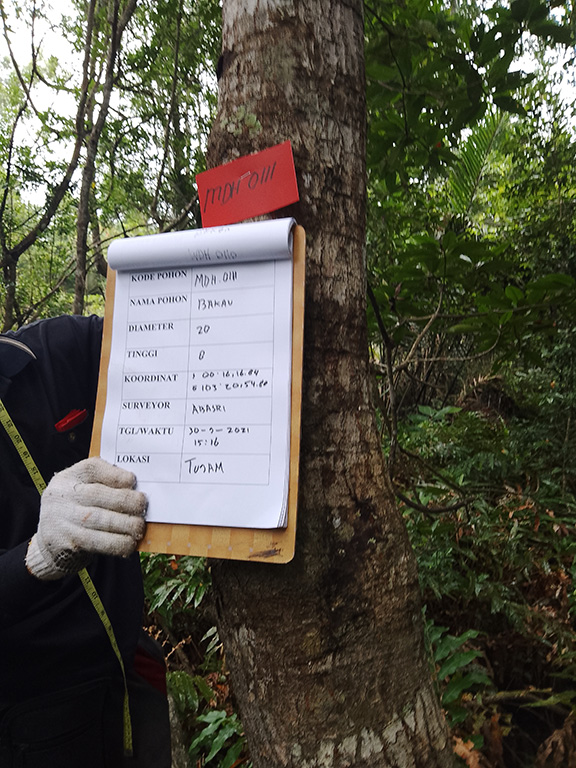 MDH 0111
MDH 0110
KODE POHON MDH.0111
NAMA POHON BAKAU
DIAMETER 20
TINGGI 8
KOORDINAT S 00:16,16.84
E 103:20,54.80
SURVEYOR ABASRI
TGL/WAKTU 30-9-2021
15:16
LOKASI TUSAM